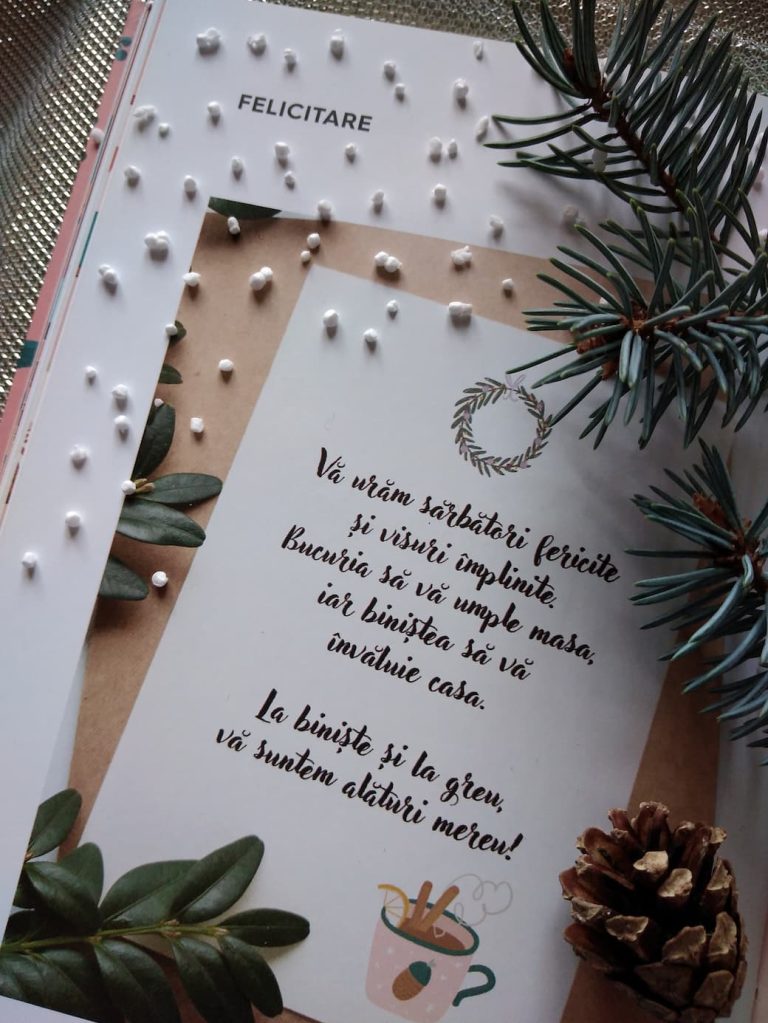 FELICITARE
Vă urăm sărbători fericite
și visuri împlinite.
Bucuria să vă umple masa,
iar biniștea să vă
învăluie casa.
La biniște și la greu,
vă suntem alături mereu!